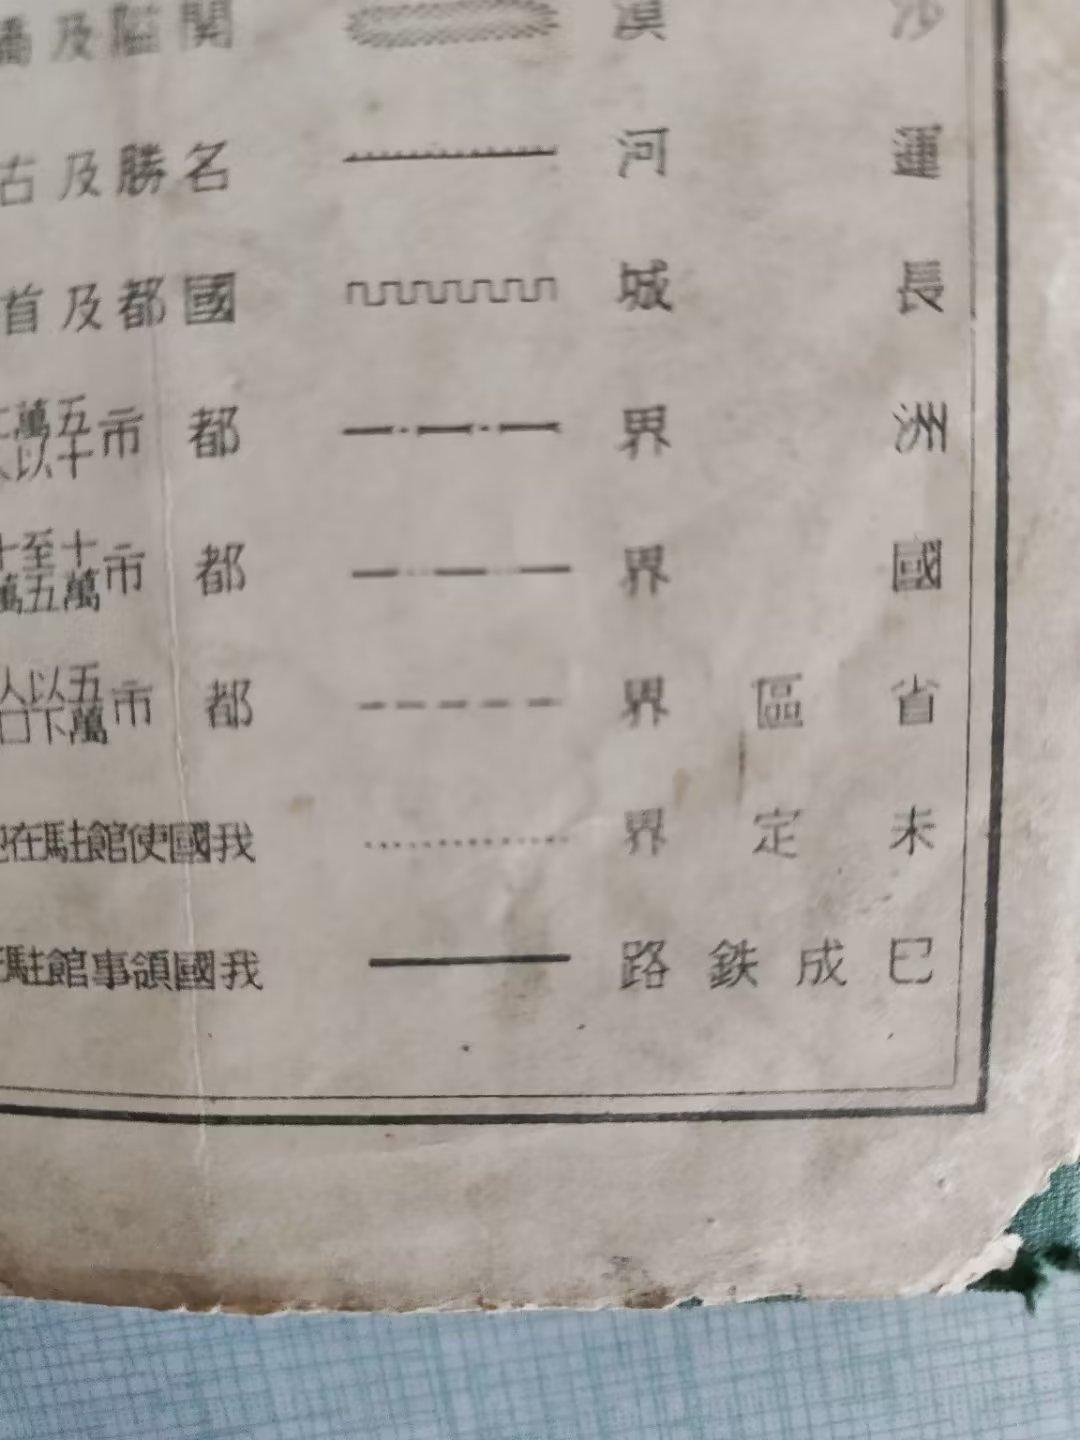 沙漠
運河
長城
洲界
國界
省區界
未定界
已成鉄路
關隘及橋
名勝及古
國都及首
都市五十萬以
都市十萬至五十萬
都市五萬以下人口
我國使館駐在
我國領事館駐